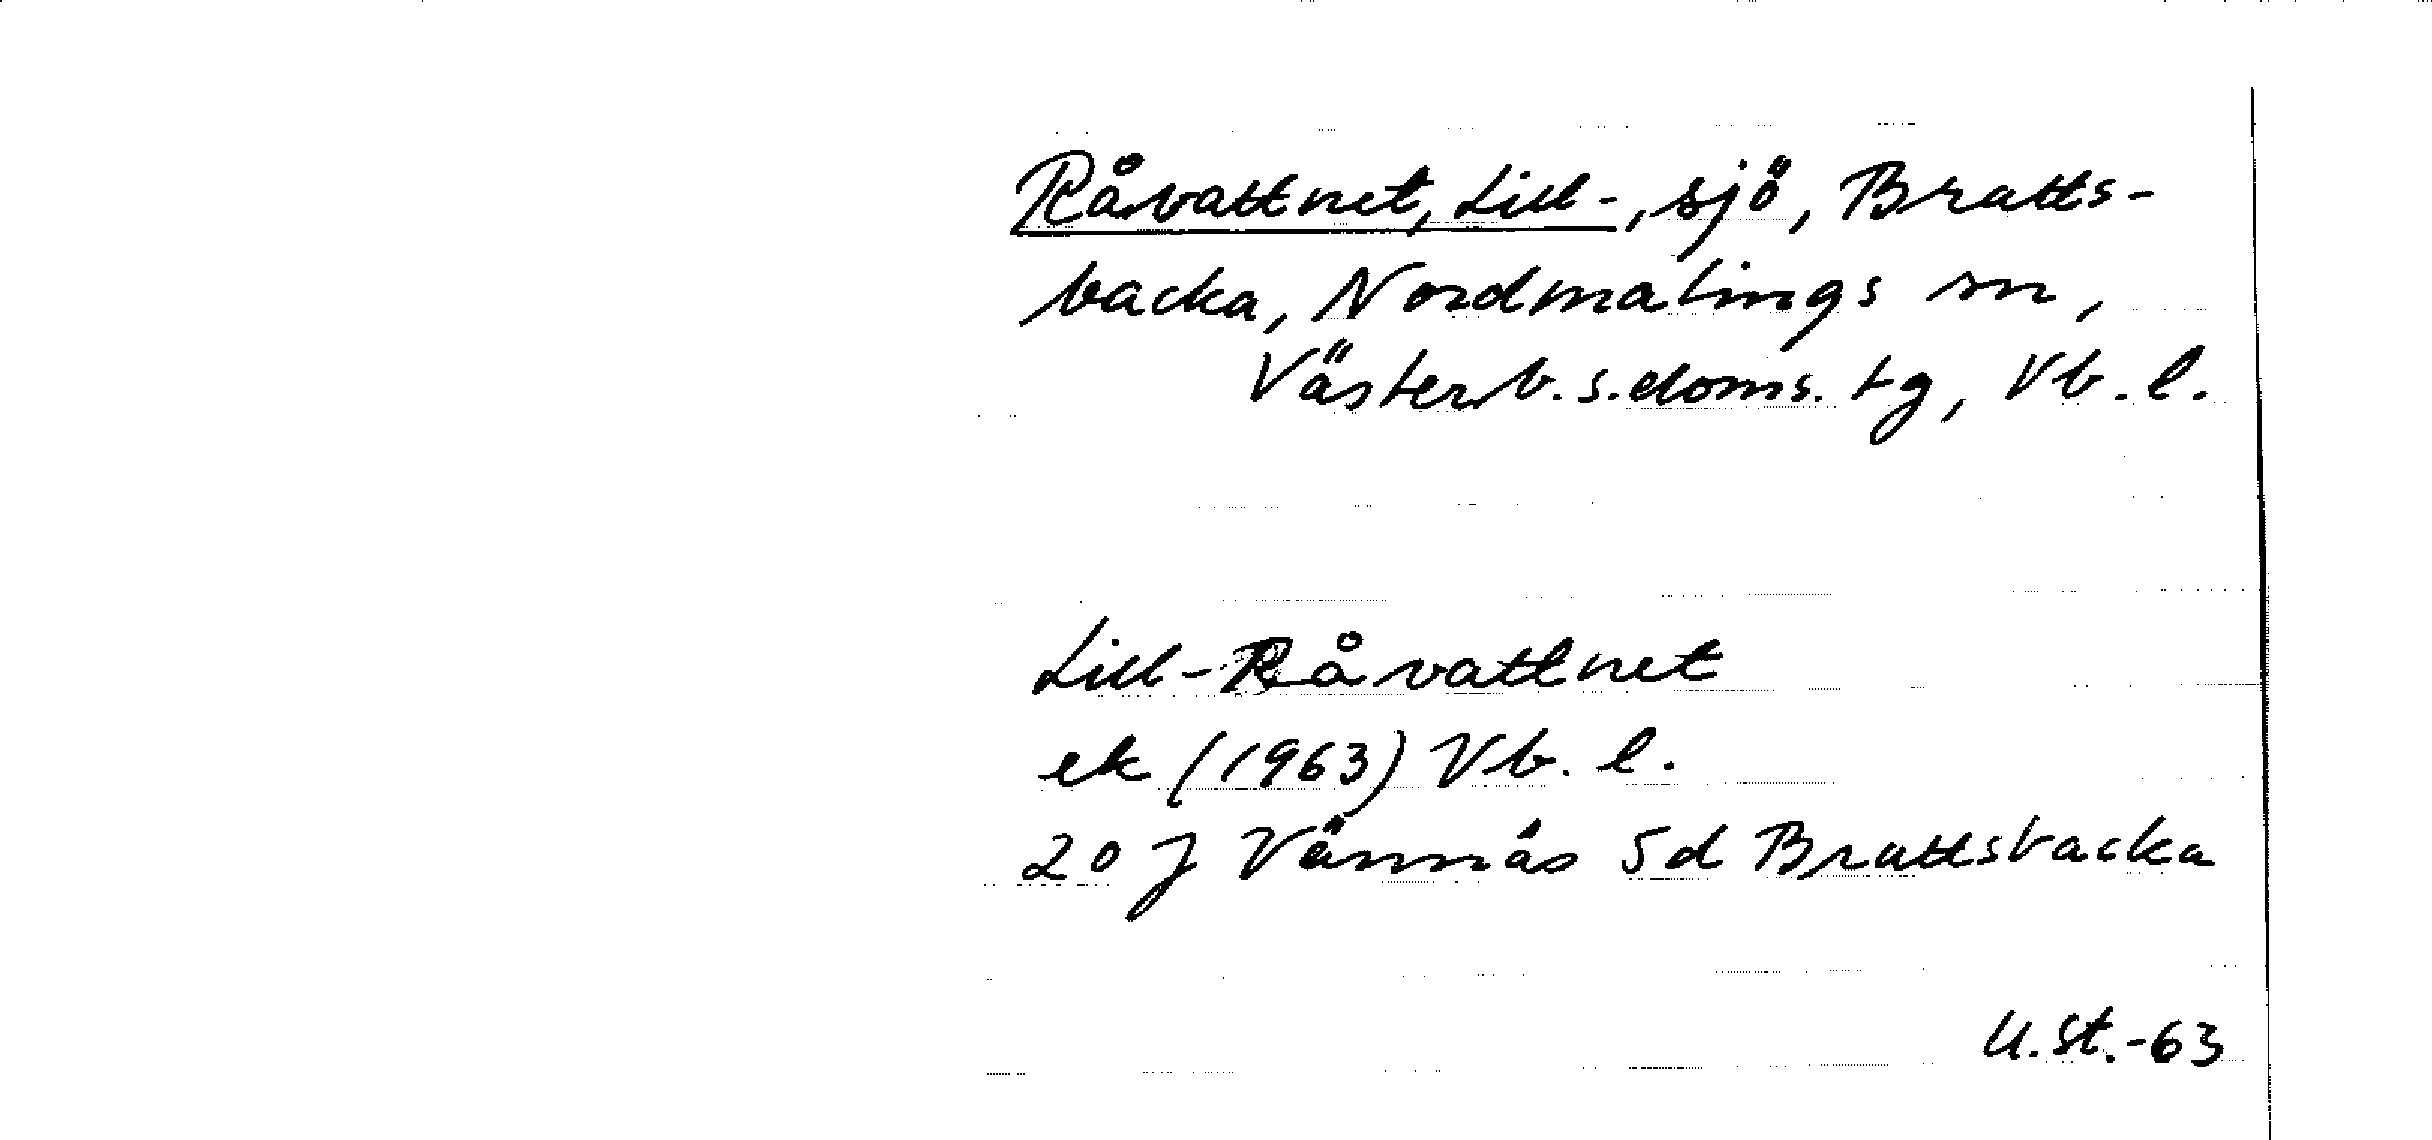 Råvattnet, Lill-, sjö, Bratts-
backa, Nordmalings sn,
Västerb. s. doms. tg, Vb. l.
Lill-Råvattnet
ek (1963) Vb. l.
20 J Vännäs 5d Brattsbacka
U. St. -63